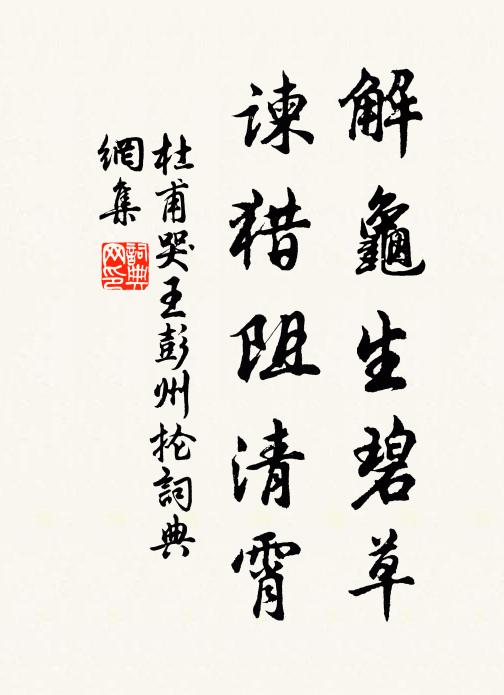 解龜生碧草
諫猎阻清霄
杜甫哭王彭州抡詞典
網集
詞典网印